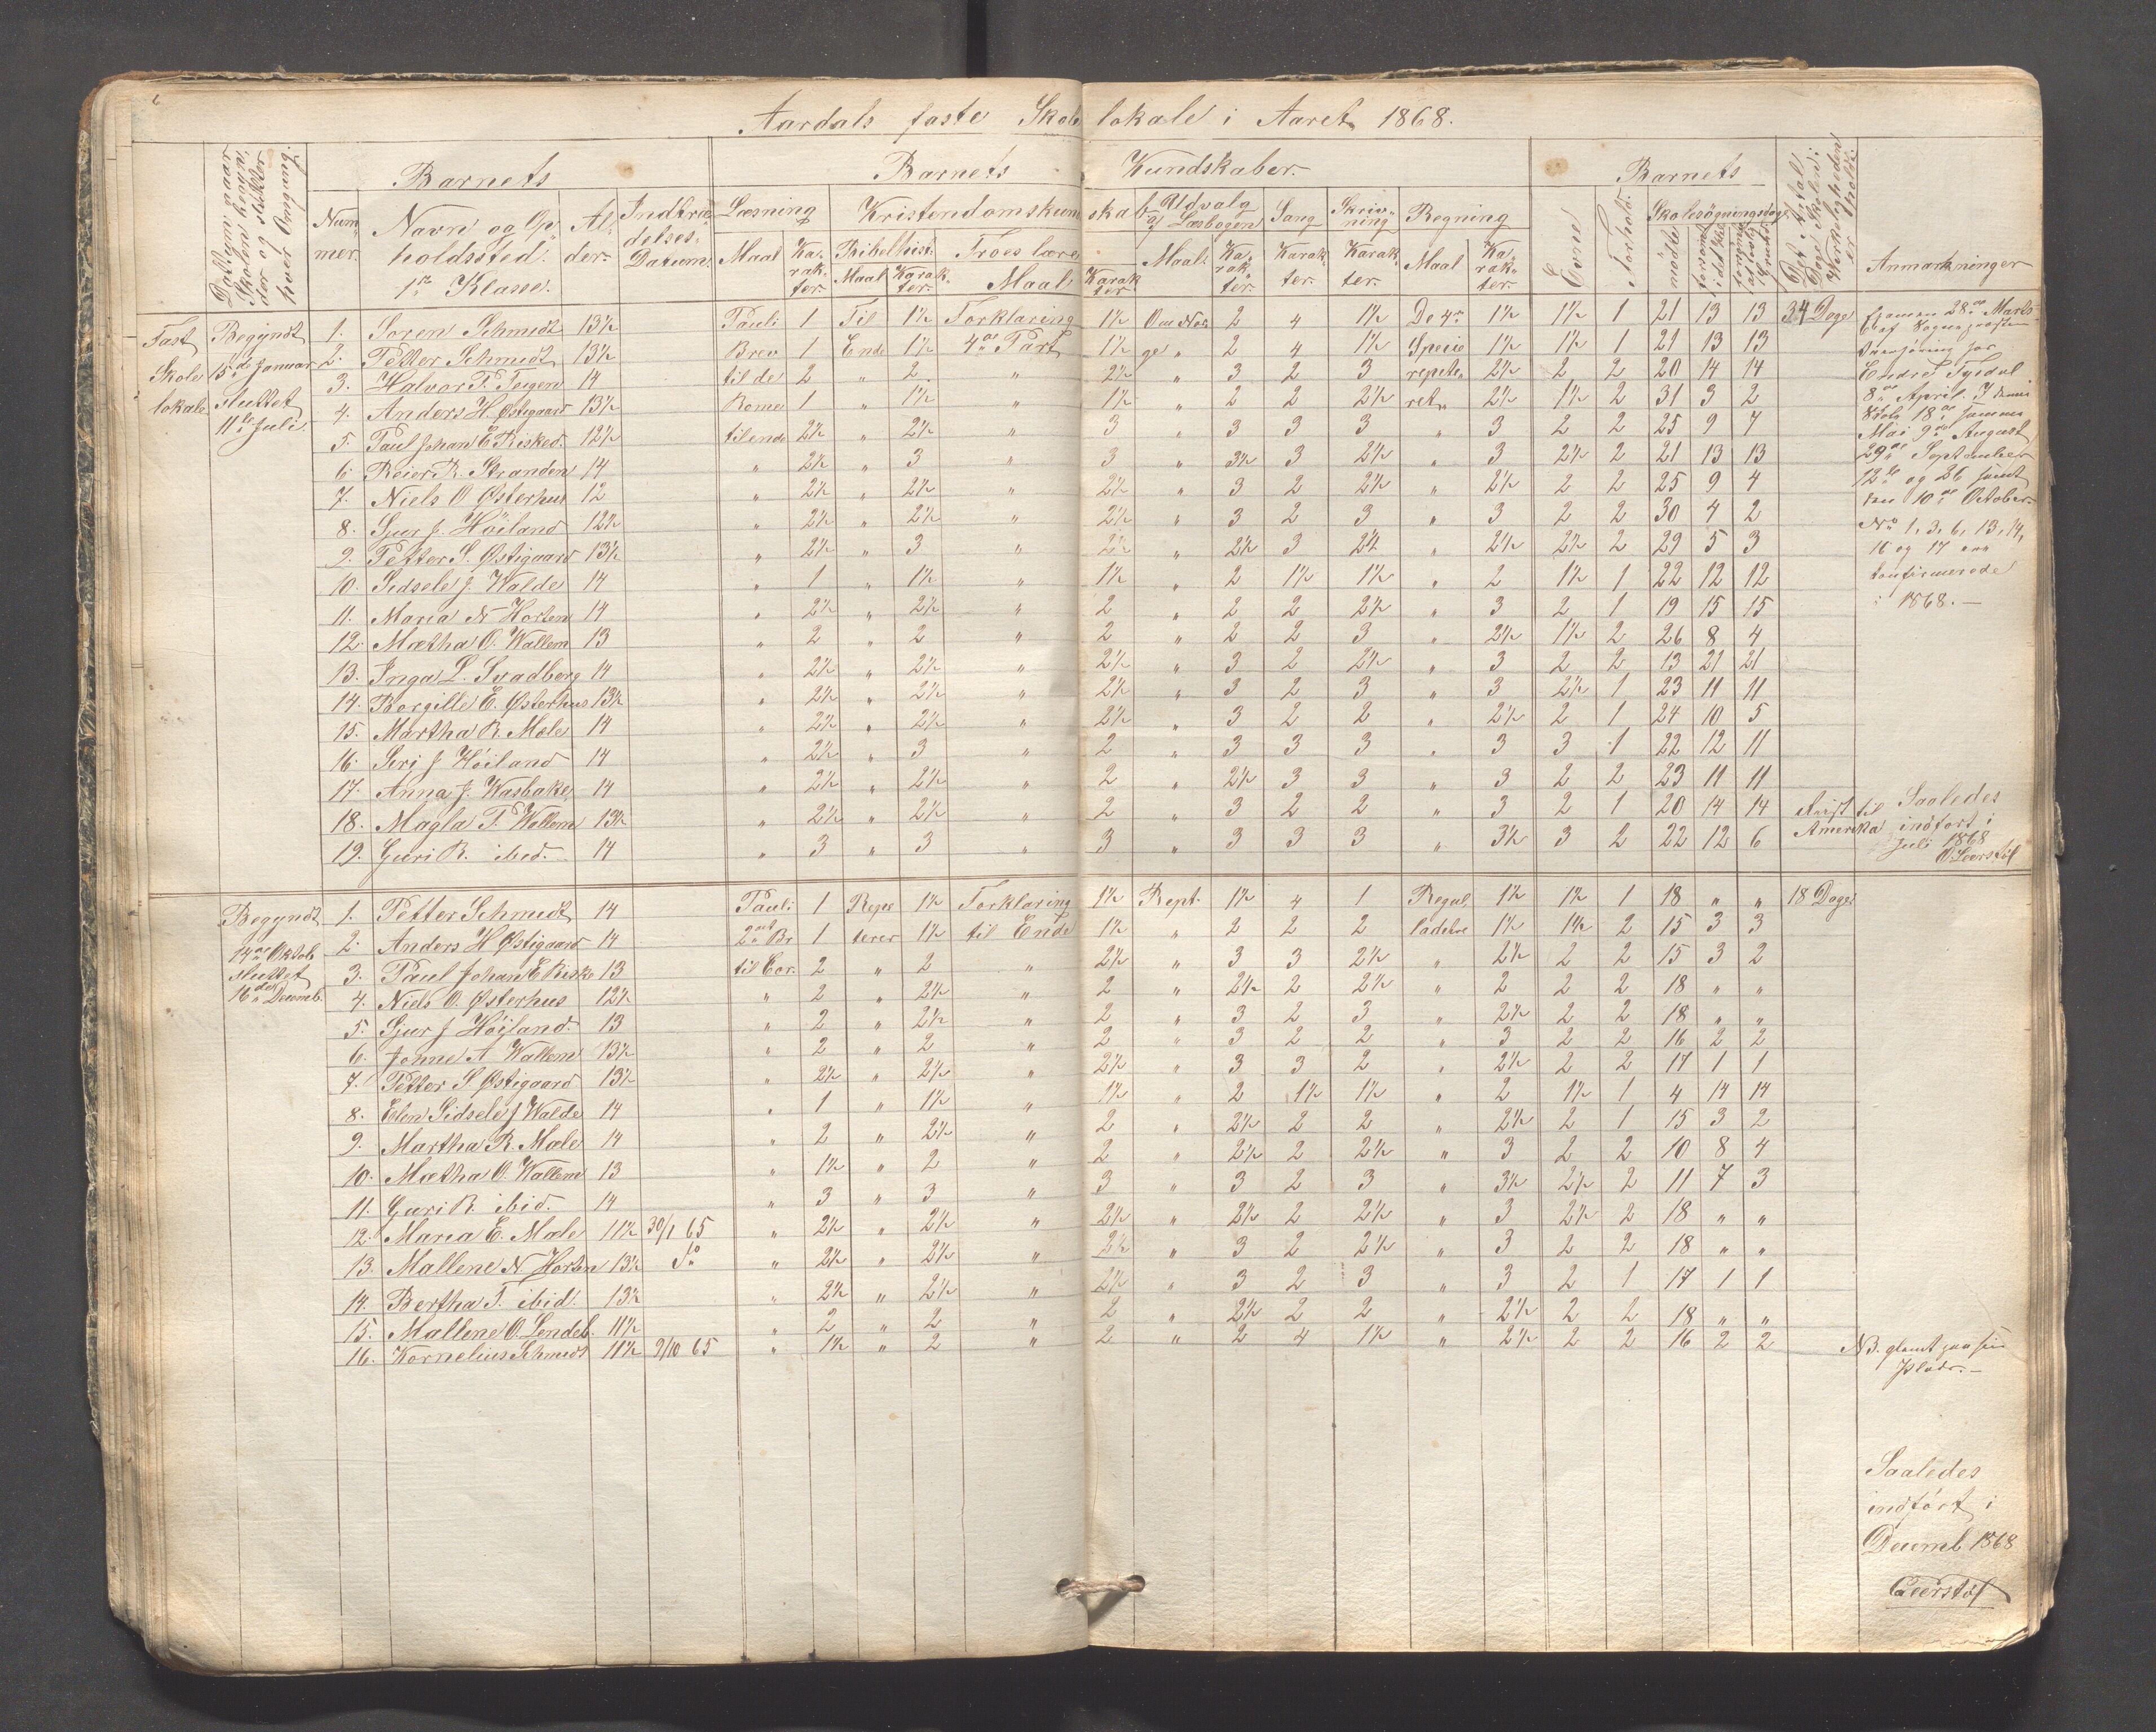 Aardals faste Skolelokale i Aaret 1868.
Barnets Barnets Kundskaber. Barnets
Datum naar Skolen begynder og slutter hver Omgang.
Nummer. Navn og Opholdssted. 1ste Klasse. Alder. Indtrædelses Datum. Læsning Kristendomskundskab Udvalg af Læsebogen Sang Skrivning Regning Evne Forhold. Skolesøgningsdage Det Antal Dage Skolen i Virkeligheden er holdt. Anmærkninger
Maal Karakter. Bibelhist. Troeslære Maal. Karakter. Karakter. Karakter. Maal Karakter. mødte forsømte i det Hele
Maal Karakter. Maal Karakter
Fast Skolelokale Begyndt 5te Januar sluttet 11te Juli.
1. Søren Schmidt 13½ Pauli 1 Til 1½ Forklaring 1½ 2 4 1½ De 4re 1½ 1½ 1 21 13 13 34 Dage
2. Petter Schmidt 13½ Brev 1 Ende 1½ 4de Part 1½ " 2 4 1½ Specie 1½ 1½ 1 21 13 13
3. Halvor T. Teigen 14 til de 2 " 2 " 2½ " 3 2 3 repete 2½ 2 2 20 14 14
4. Anders H. Østigaard 13½ Rome 1 " 1½ " 1½ " 2 2 2½ ret 2½ 1½ 2 31 3 2
5. Paul Johan E. Risked. 12½ til ende 2½ " 2½ " 3 " 3 3 3 " 3 2 2 25 9 7
6. Reier R. Stranden 14 " 2½ " 3 " 3 " 3½ 3 2½ " 3 2½ 2 21 13 13
7. Niels O Østerhus 12 " 2½ " 2½ " 2½ " 3 2 2½ " 2½ 2 2 25 9 4
8. Sjur J. Høiland 12½ " 2½ " 2½ " 2½ " 3 2 3 " 3 2 2 30 4 2
9. Petter S. Østigaard 13½ " 2½ " 3 " 2½ " 2½ 3 2½ " 2½ 2½ 2 29 5 3
10. Sidsele J. Walde 14 " 1 " 1½ " 1½ " 2 1½ 1½ " 2 1½ 1 22 12 12
11. Maria N Horten 14 " 2½ " 2½ " 2 " 2 2 2½ " 3 2 1 19 15 15
12. Mætha O. Wallem 13 " 2 " 2 " 2 " 2 2 3 " 2½ 1½ 2 26 8 4
13. Inga L. Svadberg 14 " 2½ " 2½ " 2½ " 3 2 2½ " 3 2 2 13 21 21
14. Borgille E. Østerhus 13½ " 2½ " 2½ " 2½ " 3 2 3 " 3 2½ 1 23 11 11
15. Martha R. Mæle 14 " 2½ " 2½ " 2½ " 3 2 2 " 2½ 2 1 24 10 5
16. Siri J Høiland 14 " 2½ " 3 " 2 " 3 3 3 " 3 3 1 22 12 11
17. Anna J. Wasbake 14 " 2½ " 2½ " 2 " 2½ 3 3 " 3 2 2 23 11 11
18. Magla T. Wallem 13½ " 2½ " 2½ " 2 " 3 2 2 " 3 2 1 20 14 14 til
19. Guri R. ibid. 14 " 3 " 3 " 3 " 3 3 3 " 3½ 3 2 22 12 6 Amerika
Examen 28de Marts
8de April
18de
Mai 9de August
29de September
12te og 26 samt
den 10de October
No 1, 3, 6, 13, 14,
16 og 17 ere
konfirmerede
i 1868.
Saaledes
indført i
Juli 1868
Begyndt 14de Oktob sluttet 16de Decemb.
1. Petter Schmidt 14 Pauli 1 Repe 1½ Forklaring 1½ Rept. 1½ 4 1 Regul 1½ 1½ 1 18 " " 18 Dage
2. Anders H Østigaard 14 2det Br 1 terer 1½ til Ende 1½ " 2 2 2 ladetre 1½ 1½ 2 15 3 3
3. Paul Johan E Riske 13 til Cor. 2 " 2 " 2½ " 3 3 2½ " 2½ 2 2 15 3 2
4. Niels O. Østerhus 12½ " 2 " 2½ " 2 " 2½ 2 2½ " 2 2 2 18 " "
5. Sjur J Høiland. 13 " 2 " 2½ " 2 " 3 2 3 " 2½ 2 2 18 " "
6. Jonne A Wallem 13½ " 2 " 2 " 2 " 3 2 2 " 3 2 2 16 2 2
7. Petter S Østigaard 13½ " 2½ " 2½ " 2½ " 3 3 2 " 2½ 2 2 17 1 1
8. Elen Sidsele J Walde 14 " 1 " 1½ " 1½ " 2 1½ 1½ " 2 1½ 1 4 14 14
9. Martha R. Mæle 14 " 2 " 2½ " 2 " 2½ 2 2 " 2½ 2 1 15 3 2
10. Mætha O. Wallem 13 " 1½ " 2 " 2 " 2½ 2 2½ " 3 2 2 10 8 4
11. Guri R. ibid. 14 " 3 " 3 " 3 " 3 2 3 " 3½ 2½ 2 11 7 3
12. Maria E. Mæle 11½ 30/1 65 " 2½ " 2½ " 2½ " 2½ 2 2½ " 3 2½ 2 18 " "
13. Mallene N. Horten 13½ do " 2½ " 2½ " 2½ " 3 2 2½ " 3 2 2 18 " "
14. Bertha T. ibid. 13½ " 2½ " 2½ " 2½ " 3 2 3 " 3 2 1 17 1 1
15. Mallene O. Lendeb. 11½ " 2 " 2 " 2 " 2½ 2 2 " 2½ 2 2 18 " "
16. Kornelius Schmidt 11½ 9/10 65 " 1½ " 2 " 2 " 2 4 1½ " 2½ 2 2 16 2 2 NB. glemt paa sin
Plads.
Saaledes
indført i
Decemb 1868